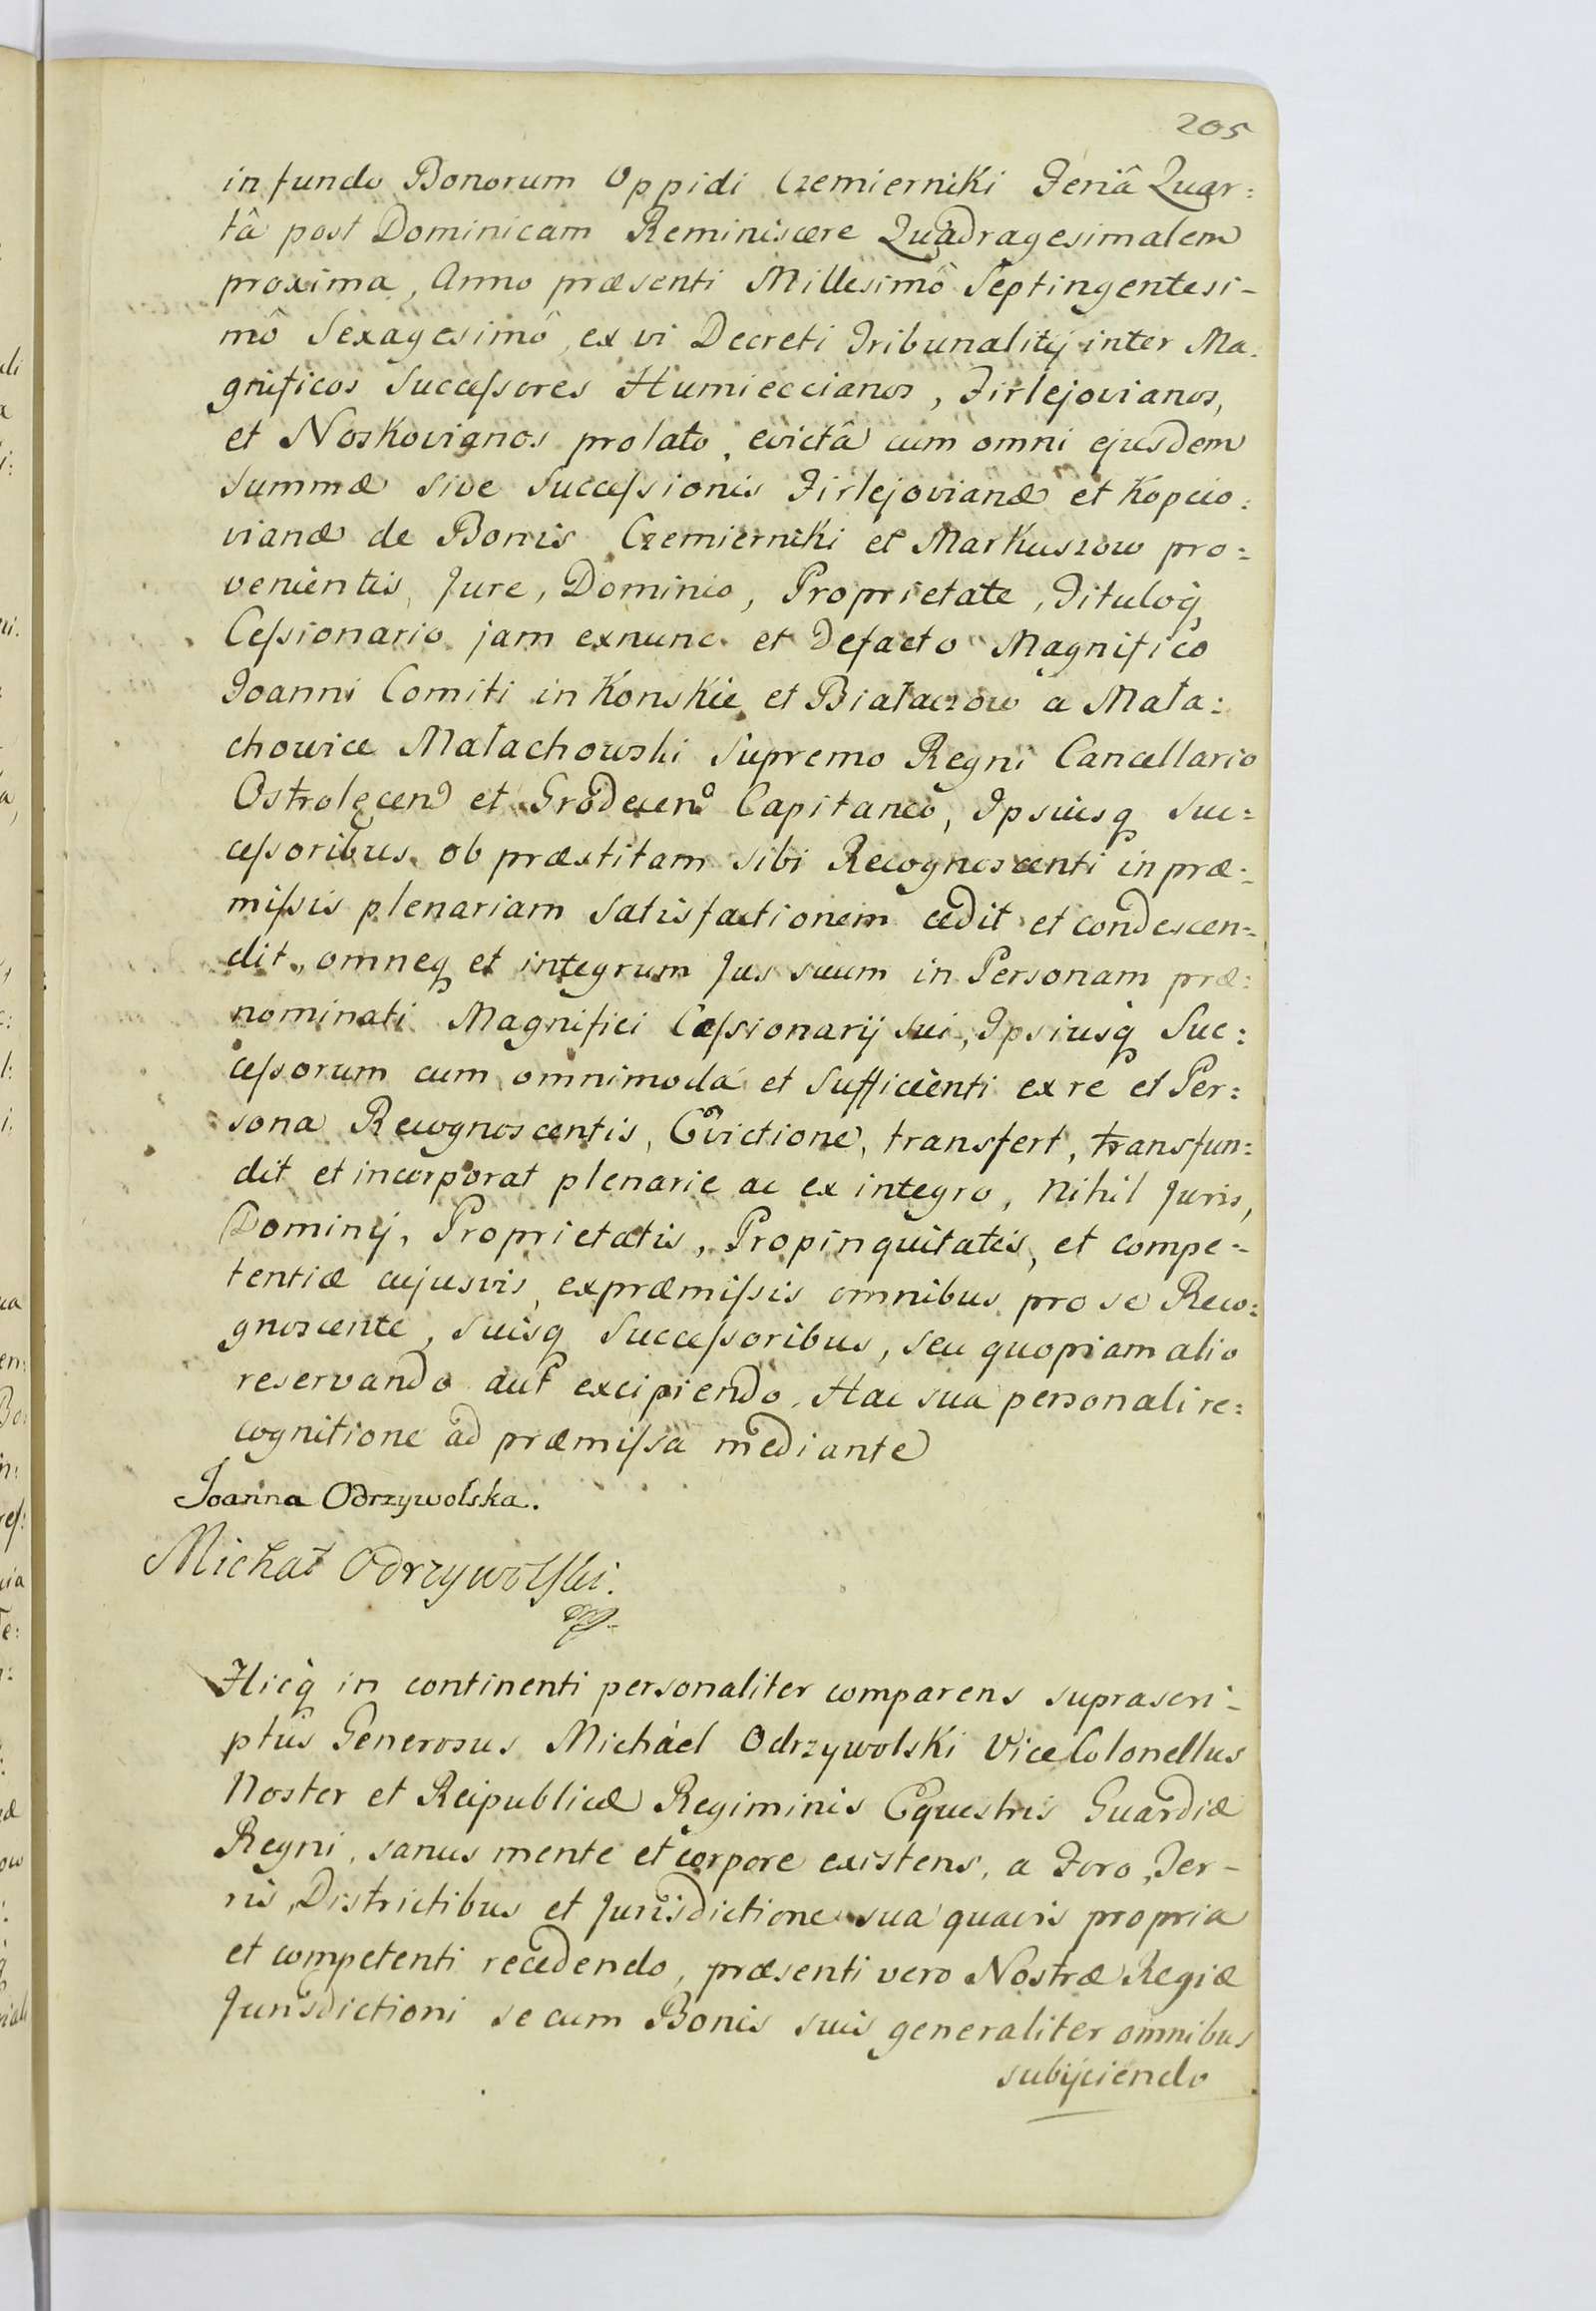 205
in fundo Bonorum Oppidi Czemierniki Feriâ Quar:
tâ post Dominicam Reminiscere Quadragesimalem
proxima, Anno præsenti Millesimô Septingentesi-
mô Sexagesimô, ex vi Decreti Tribunalitij inter Ma:
gnificos Succeſsores Humieccianos, Firlejovianos,
et Noskovianos prolato, evictâ cum omni ejusdem
Summæ sive Succeſsionis Firlejovianæ et Kopcio:
vianæ de Bonis Czemierniki et Markuszow pro:
venientis, Jure, Dominio, Proprietate, Tituloq̃
Ceſsionario jam exnunc et defacto Magnifico
Joanni Comiti in Konskie et Białaczow a Mała:
chowice Małachowski Supremo Regni Cancellario
Ostrolęcen et Grodecen° Capitaneo, Ipsiusq̃ Suc:
ceſsoribus ob præstitam sibi Recognoscenti in præ:
miſsis plenariam satisfactionem cedit et condescen:
dit, omneq̃ et integrum Jus suum in Personam præ:
nominati Magnifici Ceſsionarij sui, Ipsiusq̃ Suc:
ceſsorum cum omnimoda et sufficienti ex re et Per:
sona Recognoscentis, Evictione, transfert, transfun:
dit et incorporat plenarie ac ex integro, nihil Juris,
Dominij, Proprietatis, Propinquitatis, et compe:
tentiæ cujusvis, expræmiſsis omnibus pro se Reco:
gnoscente, suisq̃ Succeſsoribus, seu quopiam alio
reservando aut excipiendo, Hac sua personali re:
cognitione ad præmiſsa mediante
Joanna Odrzywolska.
Michał Odrzywolſki.
Ilicq̃ in continenti personaliter comparens suprascri-
ptus Generosus Michael Odrzywolski ViceColonellus
Noster et Reipublicæ Regiminis Equestris Guardiæ
Regni, sanus mente et corpore existens, a Foro, Ter-
ris, Districtibus et Jurisdictione sua quavis propria
et competenti recedendo, præsenti vero Nostræ Regiæ
Jurisdictioni se cum Bonis suis generaliter omnibus
subijciendo